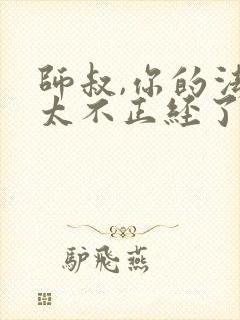 師叔,你的法
太不正経了
驴飛燕